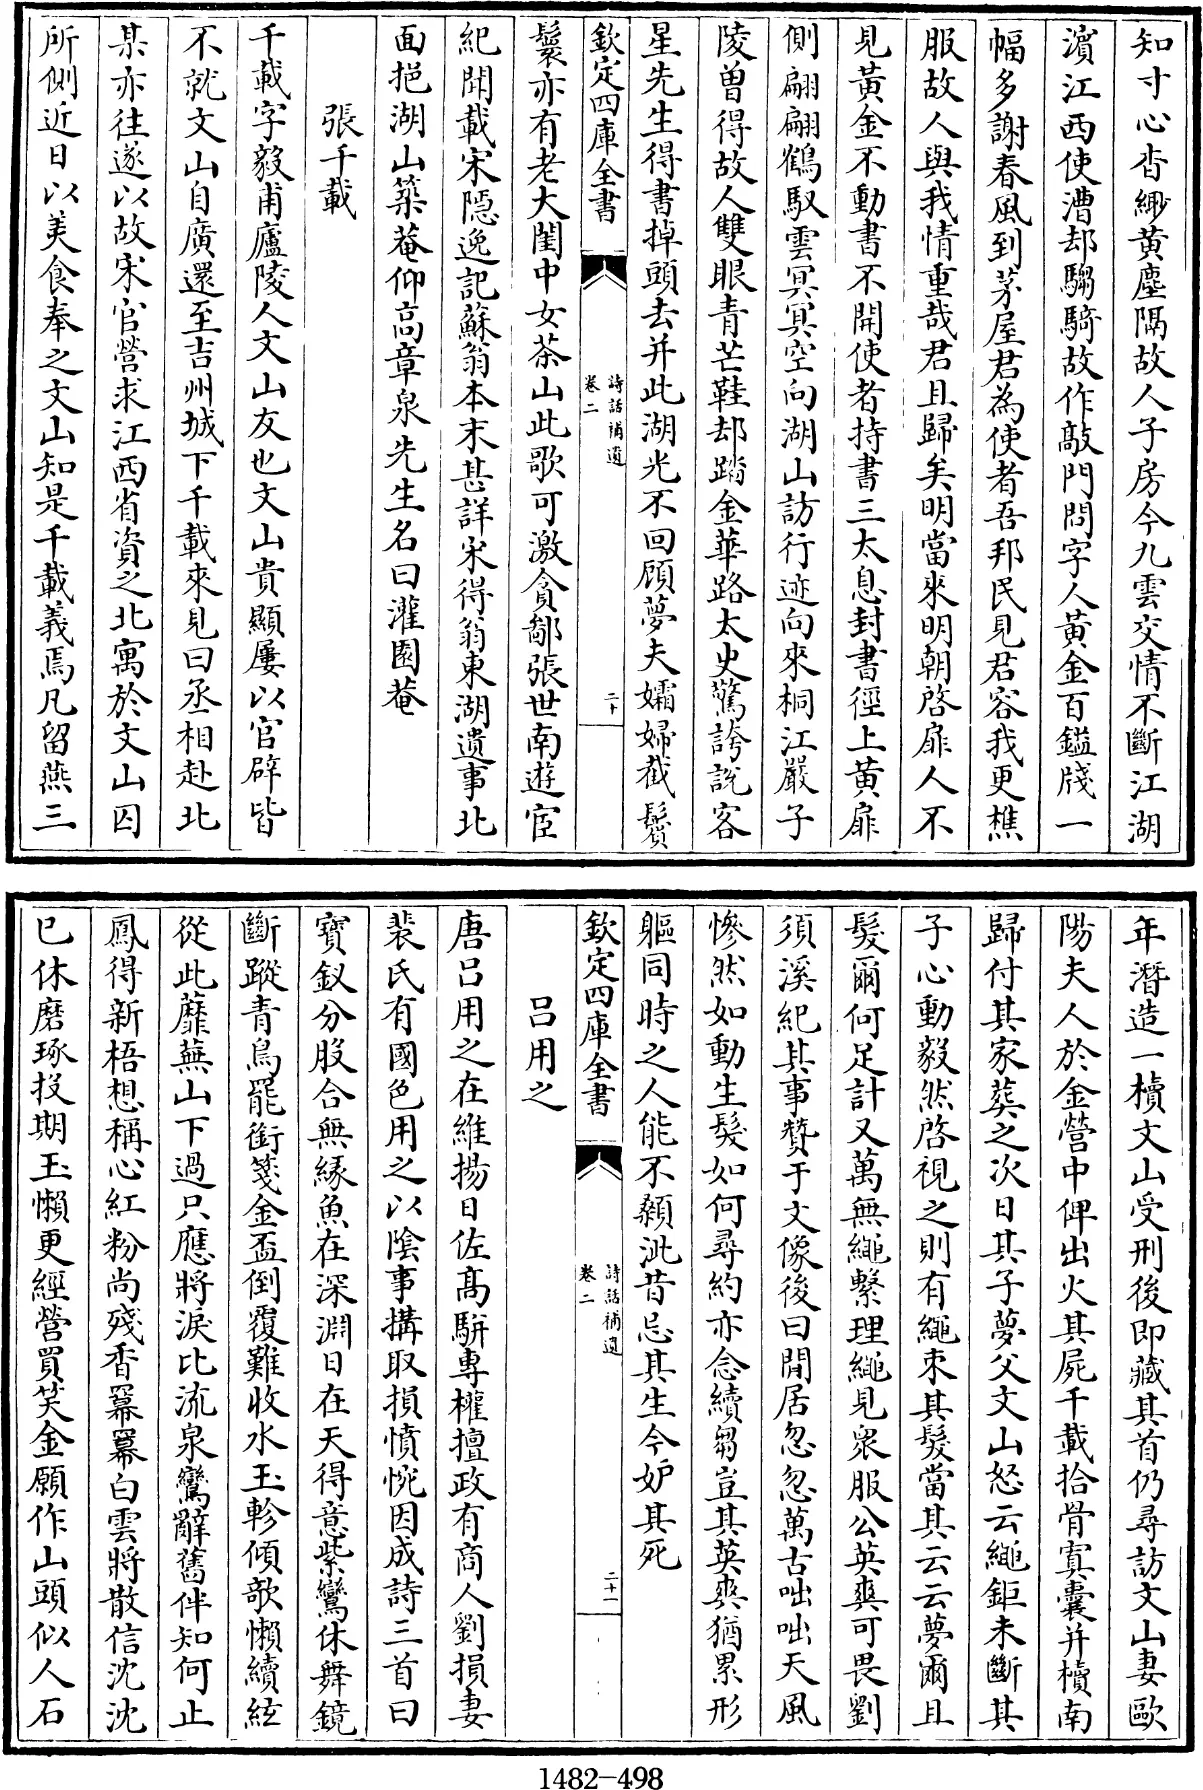 知寸心杳緲黄塵隔故人子房今九雲交情不斷江湖
濵江西使漕却騶騎故作敲門問字人黄金百鎰牋一
幅多謝春風到茅屋君為使者吾邦民見君容我更樵
服故人與我情重哉君且歸矣明當來明朝啓扉人不
見黄金不動書不開使者持書三太息封書徑上黄扉
側翩翩鶴馭雲冥冥空向湖山訪行迹向來桐江嚴子
陵曽得故人雙眼青芒鞋却踏金華路太史驚誇説客
星先生得書掉頭去并此湖光不回顧夢夫孀婦截鬢
欽定四庫全書
詩話補遺
卷二
二十
鬟亦有老大閨中女茶山此歌可激貪鄙張世南遊宦
紀聞載宋隠逸記蘇翁本末甚詳宋得翁東湖遺事北
面挹湖山築菴仰高章泉先生名曰灌園菴
張千載
千載字毅甫廬陵人文山友也文山貴顯屢以官辟皆
不就文山自廣還至吉州城下千載來見曰丞相赴北
某亦往遂以故宋官營求江西省資之北寓於文山囚
所側近日以美食奉之文山知是千載義焉凡留燕三
年潛造一櫝文山受刑後即藏其首仍尋訪文山妻歐
陽夫人於金營中俾出火其屍千載拾骨寘囊并櫝南
歸付其家葬之次日其子夢父文山怒云繩鉅未斷其
子心動毅然啓視之則有繩束其髪當其云云夢爾且
髪爾何足計又萬無繩繫理繩見衆服公英爽可畏劉
須溪紀其事贊于文像後曰閒居忽忽萬古咄咄天風
慘然如動生髪如何尋約亦念續芻豈其英爽猶累形
軀同時之人能不顙泚昔忌其生今妒其死
欽定四庫全書
詩話補遺
卷二
二十一
吕用之
唐吕用之在維揚日佐髙駢專權擅政有商人劉損妻
裴氏有國色用之以陰事搆取損憤惋因成詩三首曰
寳釵分股合無縁魚在深淵日在天得意紫鸞休舞鏡
斷蹤青鳥罷銜箋金盃倒覆難收水玉軫傾欹懶續絃
從此蘼蕪山下過只應將淚比流泉鸞辭舊伴知何止
鳳得新梧想稱心紅粉尚殘香羃羃白雲將散信沈沈
已休磨琢投期玉懶更經營買笑金願作山頭似人石
1482-498